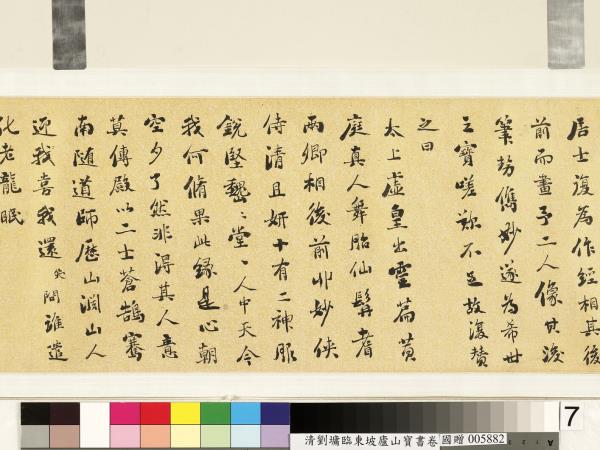 居士復為作經相其後
前而畫予二人像其後
筆勢儁妙遂為希世
之寶嗟歎不足故復贊
之曰
太上虛皇出靈篇黃
庭真人舞胎仙髯耆
兩卿相後前丱妙俠
侍清且妍十有二神服
銳堅巍〻堂〻人中天今
我何脩果此緣是心朝
空夕了然非得其人意
莫傳殿以二士蒼鵠騫
南随道師歷山淵山人
迎我喜我還笑問誰遣
化老龍眠
7
清劉墉臨東坡廬山寶書卷 國贈 005882